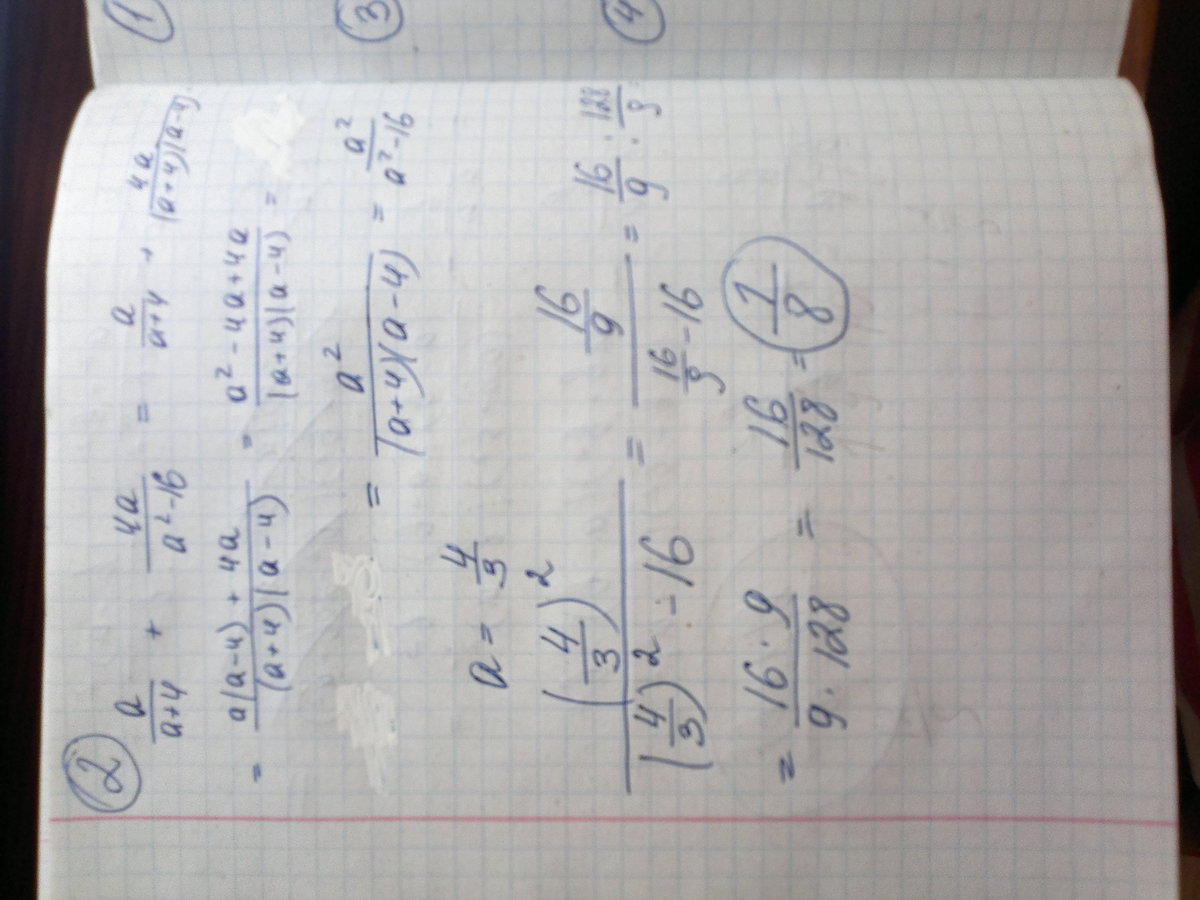 ① ③ ④
② a/(a+4) + 4a/(a²-16) = a/(a+4) + 4a/((a+4)(a-4))
= (a(a-4)+4a)/((a+4)(a-4)) = (a²-4a+4a)/((a+4)(a-4)) =
= a²/((a+4)(a-4)) = a²/(a²-16)
a = 4/3
(4/3)²/((4/3)²-16) = (16/9)/(16/9-16) = 16/9 : 128/9 =
= (16·9)/(9·128) = 16/128 = 1/8